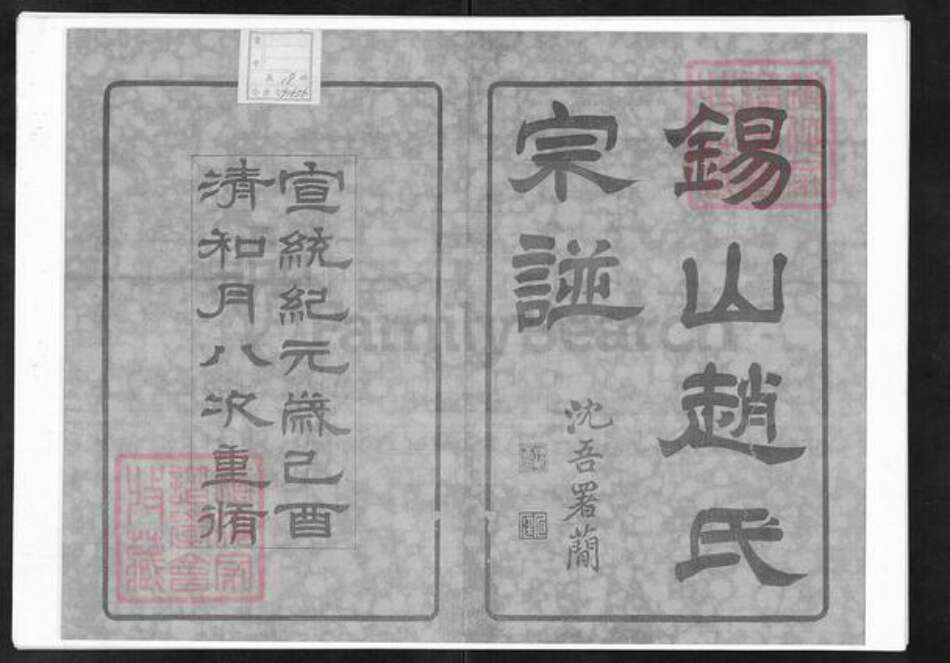 錫山趙氏
宗譜
沈吾署簡
宣統紀元歲己酉
清和月八次重脩
familysearch